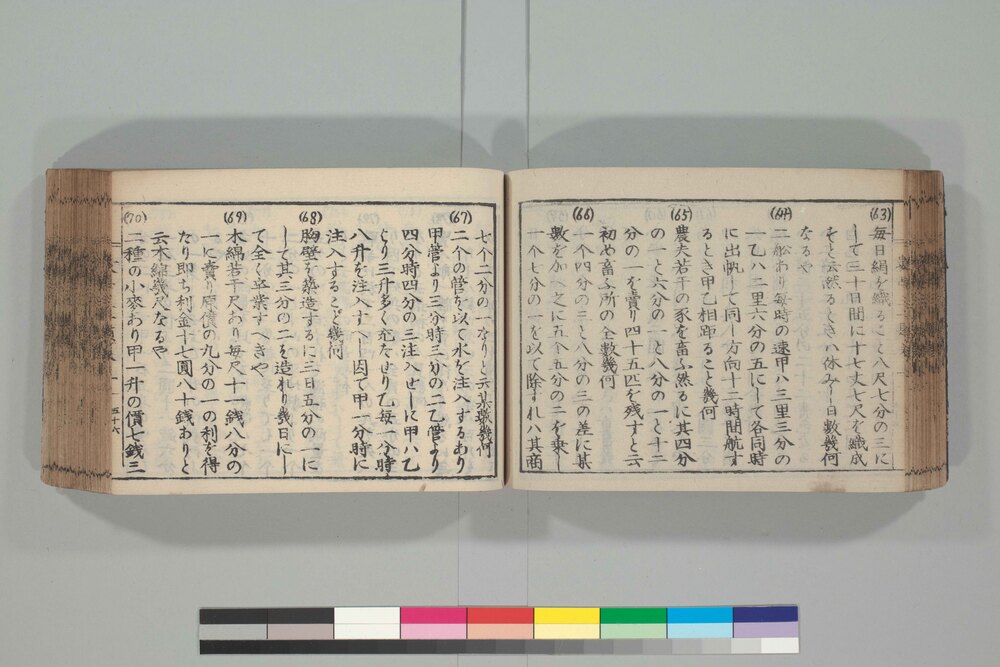 (63)
毎日絹を織ること八尺七分の三に
して三十日間に十七丈七尺を織成
そと云然るときハ休みし日數幾何
なるや
(64)
二舩あり毎時の速甲ハ三里三分の
一乙ハ二里六分の五にして各同時
に出帆して同し方向十二時間航す
るとき甲乙相距ること幾何
(65)
農夫若干の豕を畜ふ然るに其四分
の一と六分の一と八分の一と十二
分の一を賣り四十五匹を残すと云
初め畜ふ所の全數幾何
(66)
十个四分の三と八分の三の差に某
數を加へ之に五个五分の二を乗し
一个七分の一を以て除すれハ其商
七个二分の一なりと云某數幾何
(67)
二个の管を以て水を注入するあり
甲管より三分時三分の二乙管より
四分時四分の三注入せしに甲ハ乙
より三升多く充たせり乙毎一分時
八升を注入すへし因て甲一分時に
注入すること幾何
(68)
胸壁を築造するに三日五分の一に
して其三分の二を造れり幾日にし
て全く卒業すへきや
(69)
木綿若干尺あり毎尺十一銭八分の
一に賣り原價の九分の一の利を得
たり即ち利金十七圓八十銭ありと
云木綿幾尺なるや
(70)
二種の小麥あり甲一升の價七銭三
五十六